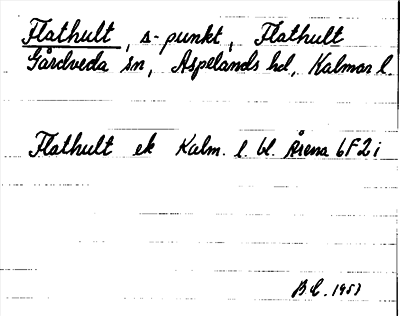 Flathult, s-punkt, Flathult
Gårdveda sn, Aspelands hd, Kalmar l.
Flathult ek Kalm. l. bl. Årena 6F2i
1951